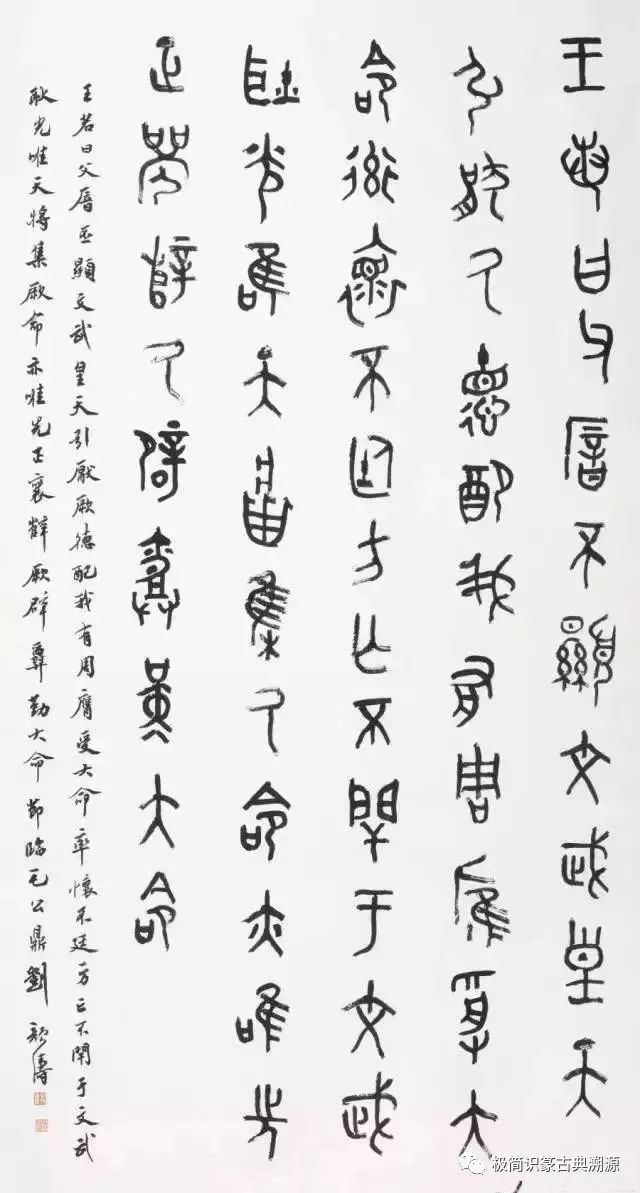 王若曰父厝不顯文武皇天
引厭厥德配我有周膺受大
命率懷不廷方亡不閈于文武
耿光唯天將集厥命亦唯先
正襄辥厥辟勤大命
王若曰父厝丕顯文武皇天引厭厥德配我有周膺受大命率懷不廷方亡不閈于文武
耿光唯天將集厥命亦唯先正襄辥厥辟勤大命節臨毛公鼎劉顏濤
极简识篆古典溯源